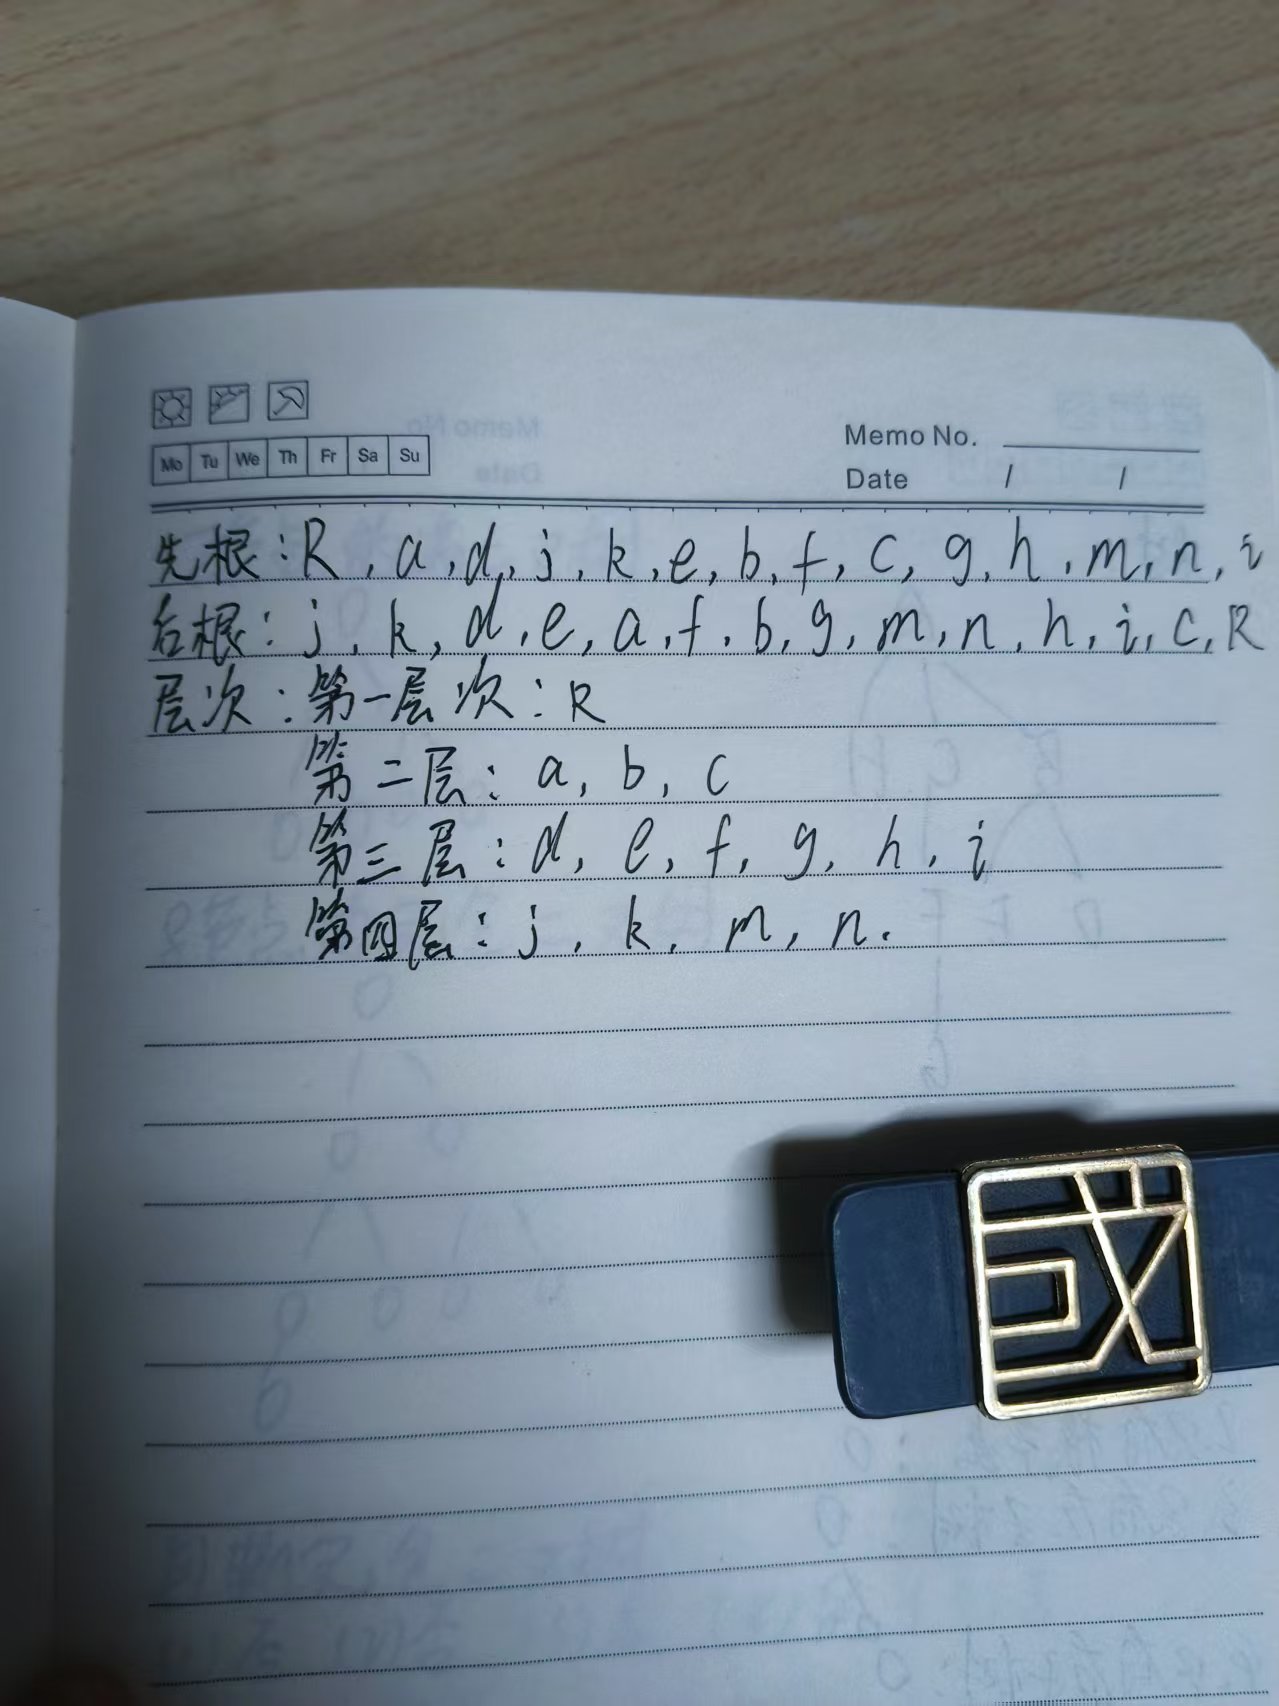 Mo Tu We Th Fr Sa Su
Memo No.
Date / /
先根:R,a,d,j,k,e,b,f,c,g,h,m,n,i
后根:j,k,d,e,a,f,b,g,m,n,h,i,c,R
层次:第一层次:R
第二层:a,b,c
第三层:d,e,f,g,h,i
第四层:j,k,m,n.